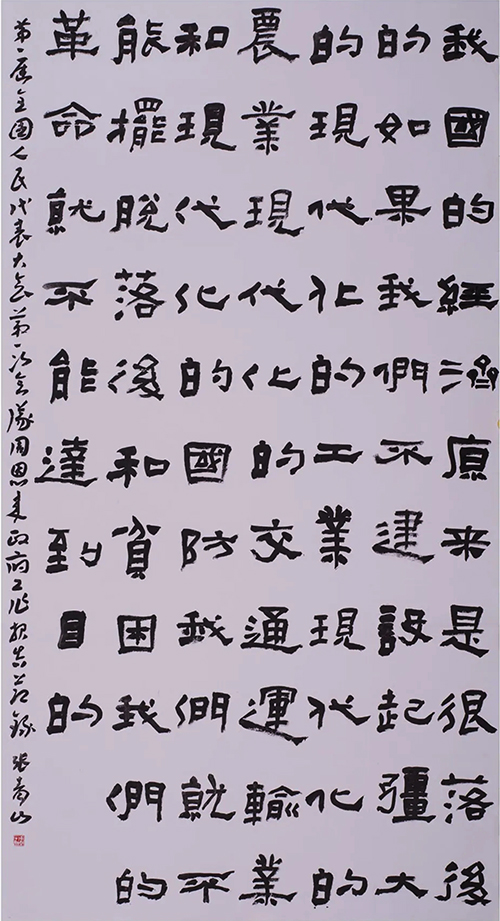 我國的經濟原来是很落後
的如果我們不建設起彊大
的現代化的工業現代化的
農業現代化的交通運輸業
和現代化的國防我們就不
能擺脫落後和貧困我們的
革命就不能達到目的
第一届全国人民代表大会第一次会議周恩来政府工作报告节錄 張山